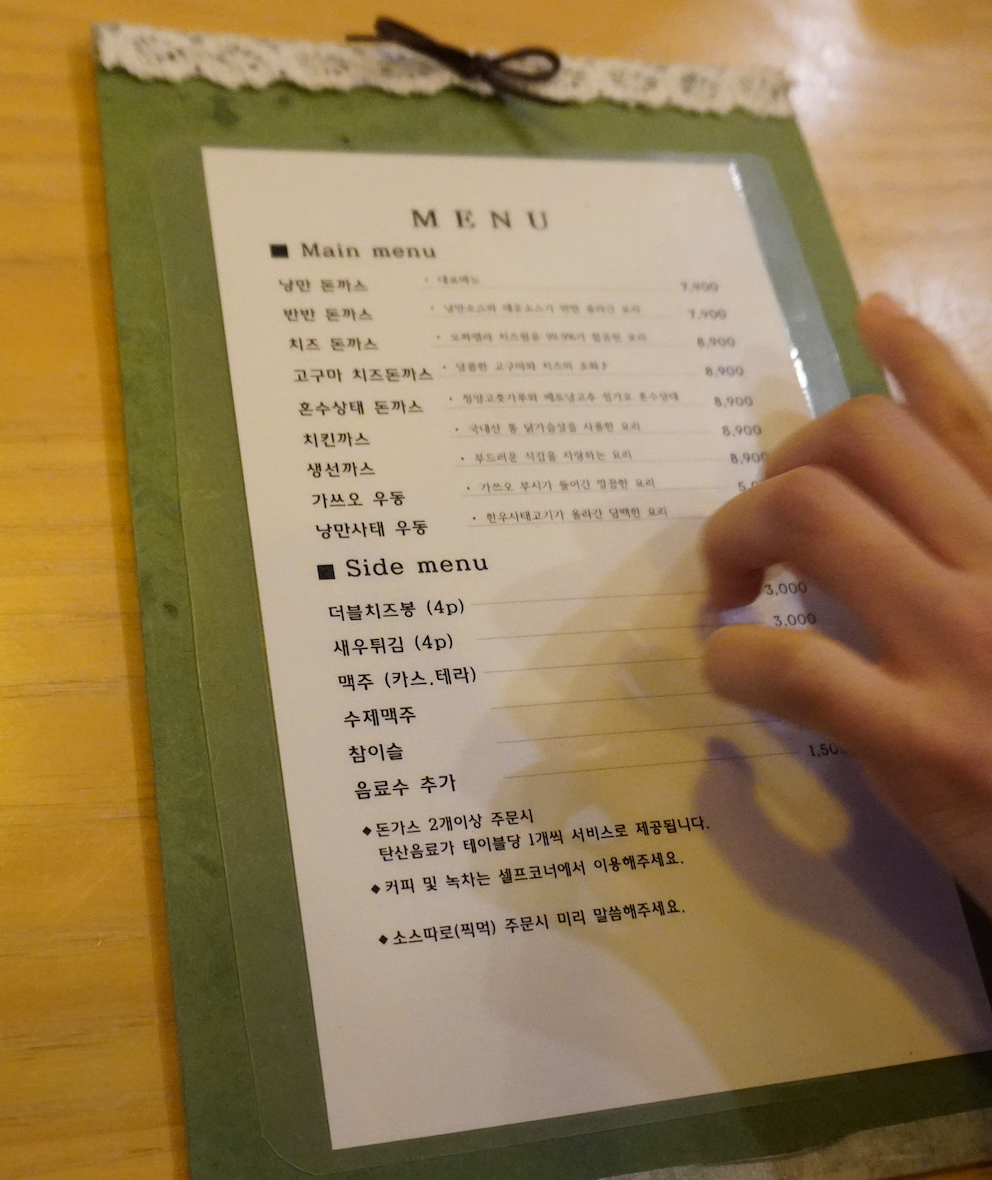 MENU
■ Main menu
낭만 돈까스 · 대표메뉴 7,900
반반 돈까스 · 낭만소스와 매운소스가 반반 올라간 요리 7,900
치즈 돈까스 · 모짜렐라 치즈함유 99.9%가 함유된 요리 8,900
고구마 치즈돈까스 · 달콤한 고구마와 치즈의 조화♪ 8,900
혼수상태 돈까스 · 청양고춧가루와 베트남고추 첨가로 혼수상태 8,900
치킨까스 · 국내산 통 닭가슴살을 사용한 요리 8,900
생선까스 · 부드러운 식감을 자랑하는 요리 8,900
가쓰오 우동 · 가쓰오 부시가 들어간 깔끔한 요리
낭만사태 우동 · 한우사태고기가 올라간 담백한 요리
■ Side menu
더블치즈봉 (4p) 3,000
새우튀김 (4p) 3,000
맥주 (카스.테라)
수제맥주
참이슬
음료수 추가
◆돈가스 2개이상 주문시
탄산음료가 테이블당 1개씩 서비스로 제공됩니다.
◆커피 및 녹차는 셀프코너에서 이용해주세요.
◆소스따로(찍먹) 주문시 미리 말씀해주세요.